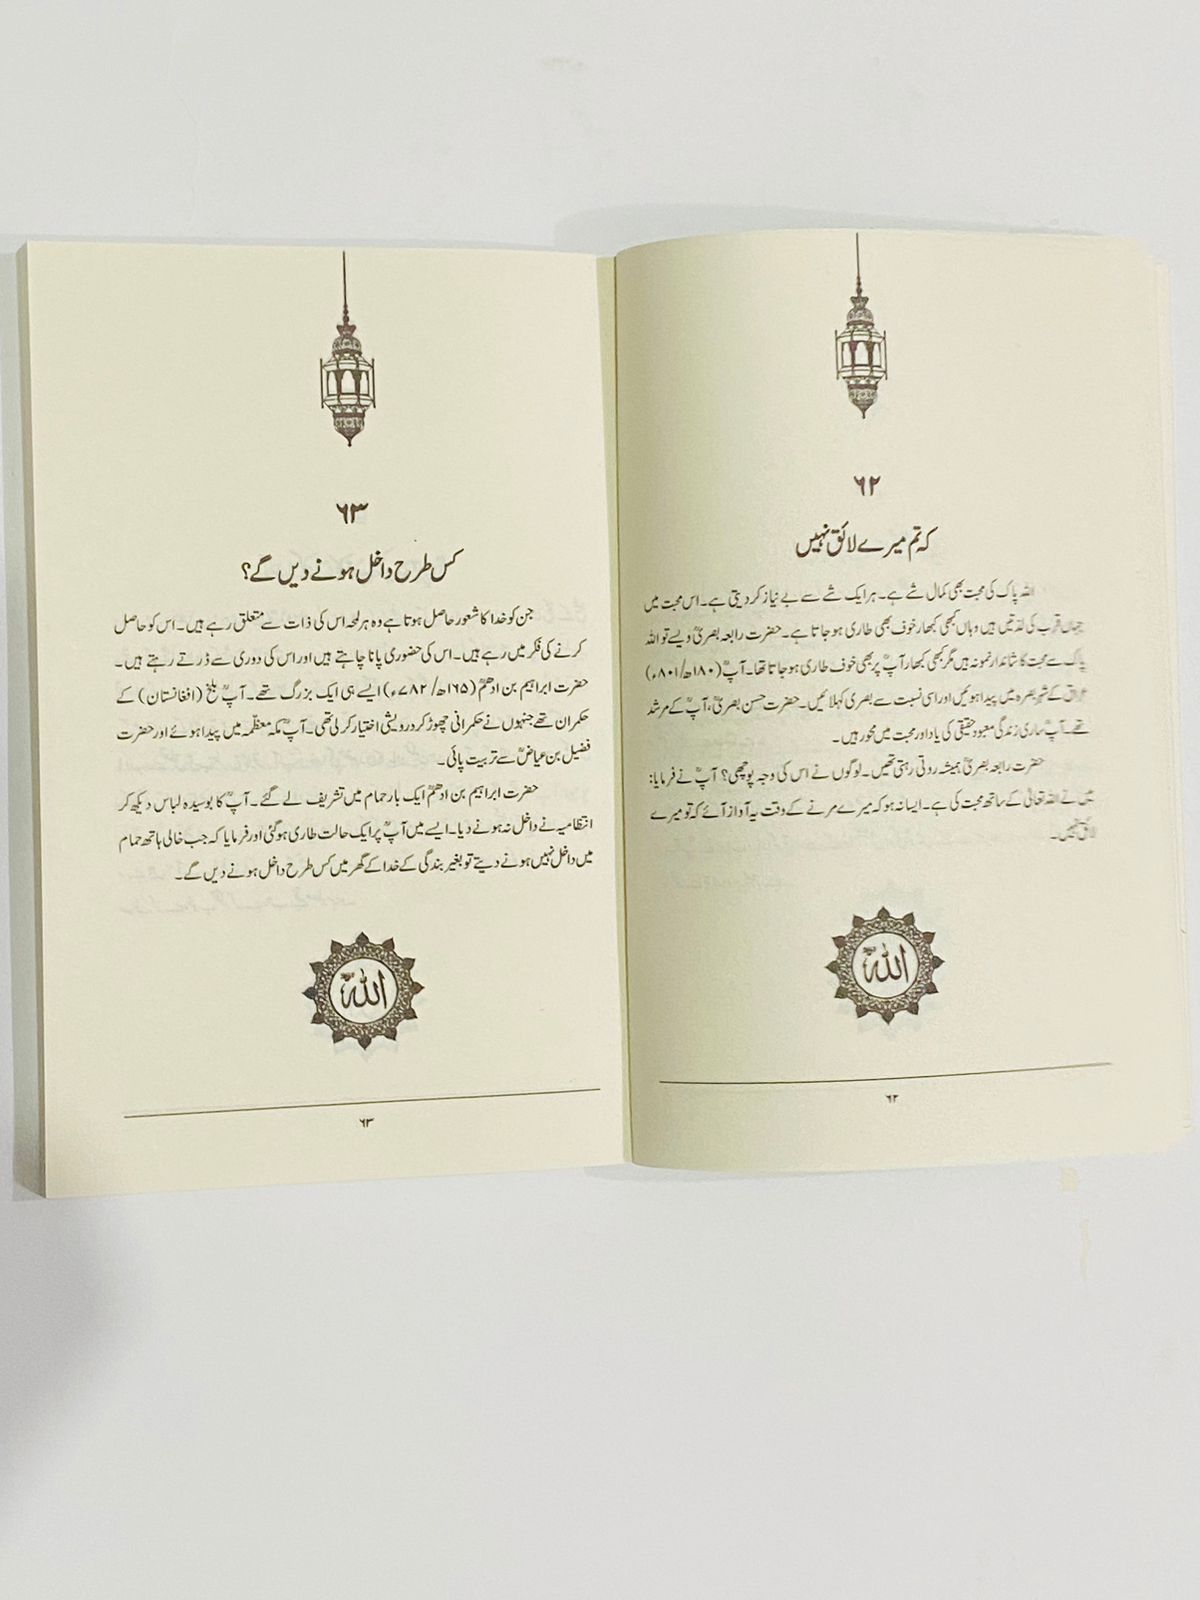 ۶۲
کہ تم میرے لائق نہیں
اللہ پاک کی محبت بھی کمال شے ہے۔ ہر ایک شے سے بے نیاز کر دیتی ہے۔ اس محبت میں
جہاں قرب کی لذتیں ہیں وہاں بھی کبھار خوف بھی طاری ہو جاتا ہے۔ حضرت رابعہ بصریؒ ویسے تو اللہ
پاک سے محبت کا شاندار نمونہ ہیں مگر کبھی کبھار آپؒ پر بھی خوف طاری ہو جاتا تھا۔ آپؒ (۱۸۰ھ/۸۰۱ء)
عراق کے شہر بصرہ میں پیدا ہوئیں اور اسی نسبت سے بصری کہلائیں۔ حضرت حسن بصریؒ، آپؒ کے مرشد
تھے۔ آپؒ ساری زندگی معبود حقیقی کی یاد اور محبت میں محور ہیں۔
حضرت رابعہ بصریؒ ہمیشہ روتی رہتی تھیں۔ لوگوں نے اس کی وجہ پوچھی؟ آپؒ نے فرمایا:
میں نے اللہ تعالیٰ کے ساتھ محبت کی ہے۔ ایسا نہ ہو کہ میرے مرنے کے وقت یہ آواز آئے کہ تو میرے
لائق نہیں۔
اللہ
۶۲
۶۳
کس طرح داخل ہونے دیں گے؟
جن کو خدا کا شعور حاصل ہوتا ہے وہ ہر لمحہ اس کی ذات سے متعلق رہے ہیں۔ اس کو حاصل
کرنے کی فکر میں رہے ہیں۔ اس کی حضوری پانا چاہتے ہیں اور اس کی دوری سے ڈرتے رہتے ہیں۔
حضرت ابراہیم بن ادھمؒ (۱۶۵ھ/۷۸۲ء) ایسے ہی ایک بزرگ تھے۔ آپؒ بلخ (افغانستان) کے
حکمران تھے جنہوں نے حکمرانی چھوڑ کر درویشی اختیار کر لی تھی۔ آپؒ مکہ معظّمہ میں پیدا ہوئے اور حضرت
فضیل بن عیاضؒ سے تربیت پائی۔
حضرت ابراہیم بن ادھمؒ ایک بار حمام میں تشریف لے گئے۔ آپؒ کا بوسیدہ لباس دیکھ کر
انتظامیہ نے داخل نہ ہونے دیا۔ ایسے میں آپؒ پر ایک حالت طاری ہو گئی اور فرمایا کہ جب خالی ہاتھ حمام
میں داخل نہیں ہونے دیتے تو بغیر بندگی کے خدا کے گھر میں کس طرح داخل ہونے دیں گے۔
اللہ
۶۳